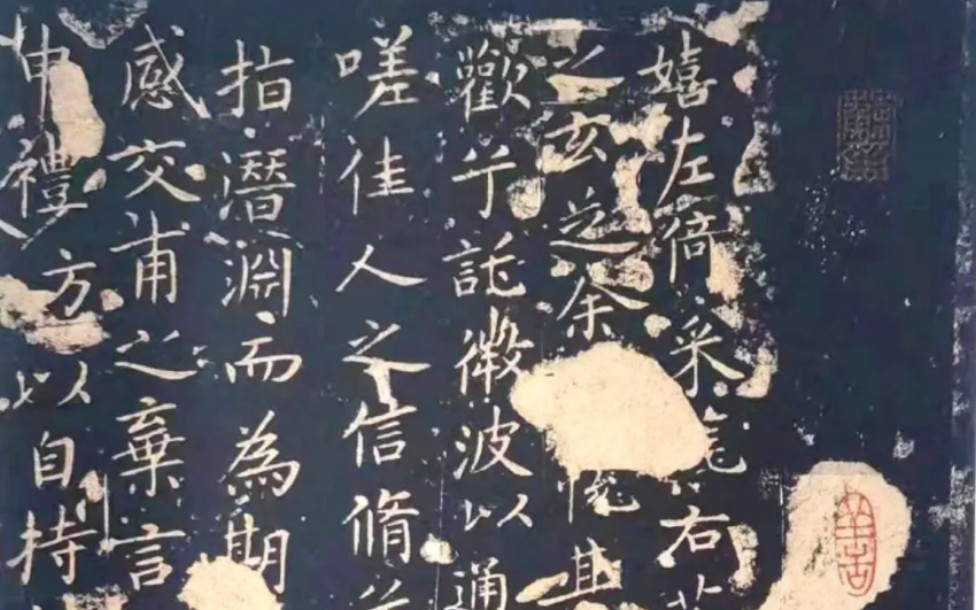 嬉左倚采旄右
之玄芝余
歡兮託微波以通
嗟佳人之信脩
指潛淵而為期
感交甫之棄言
申禮方以自持